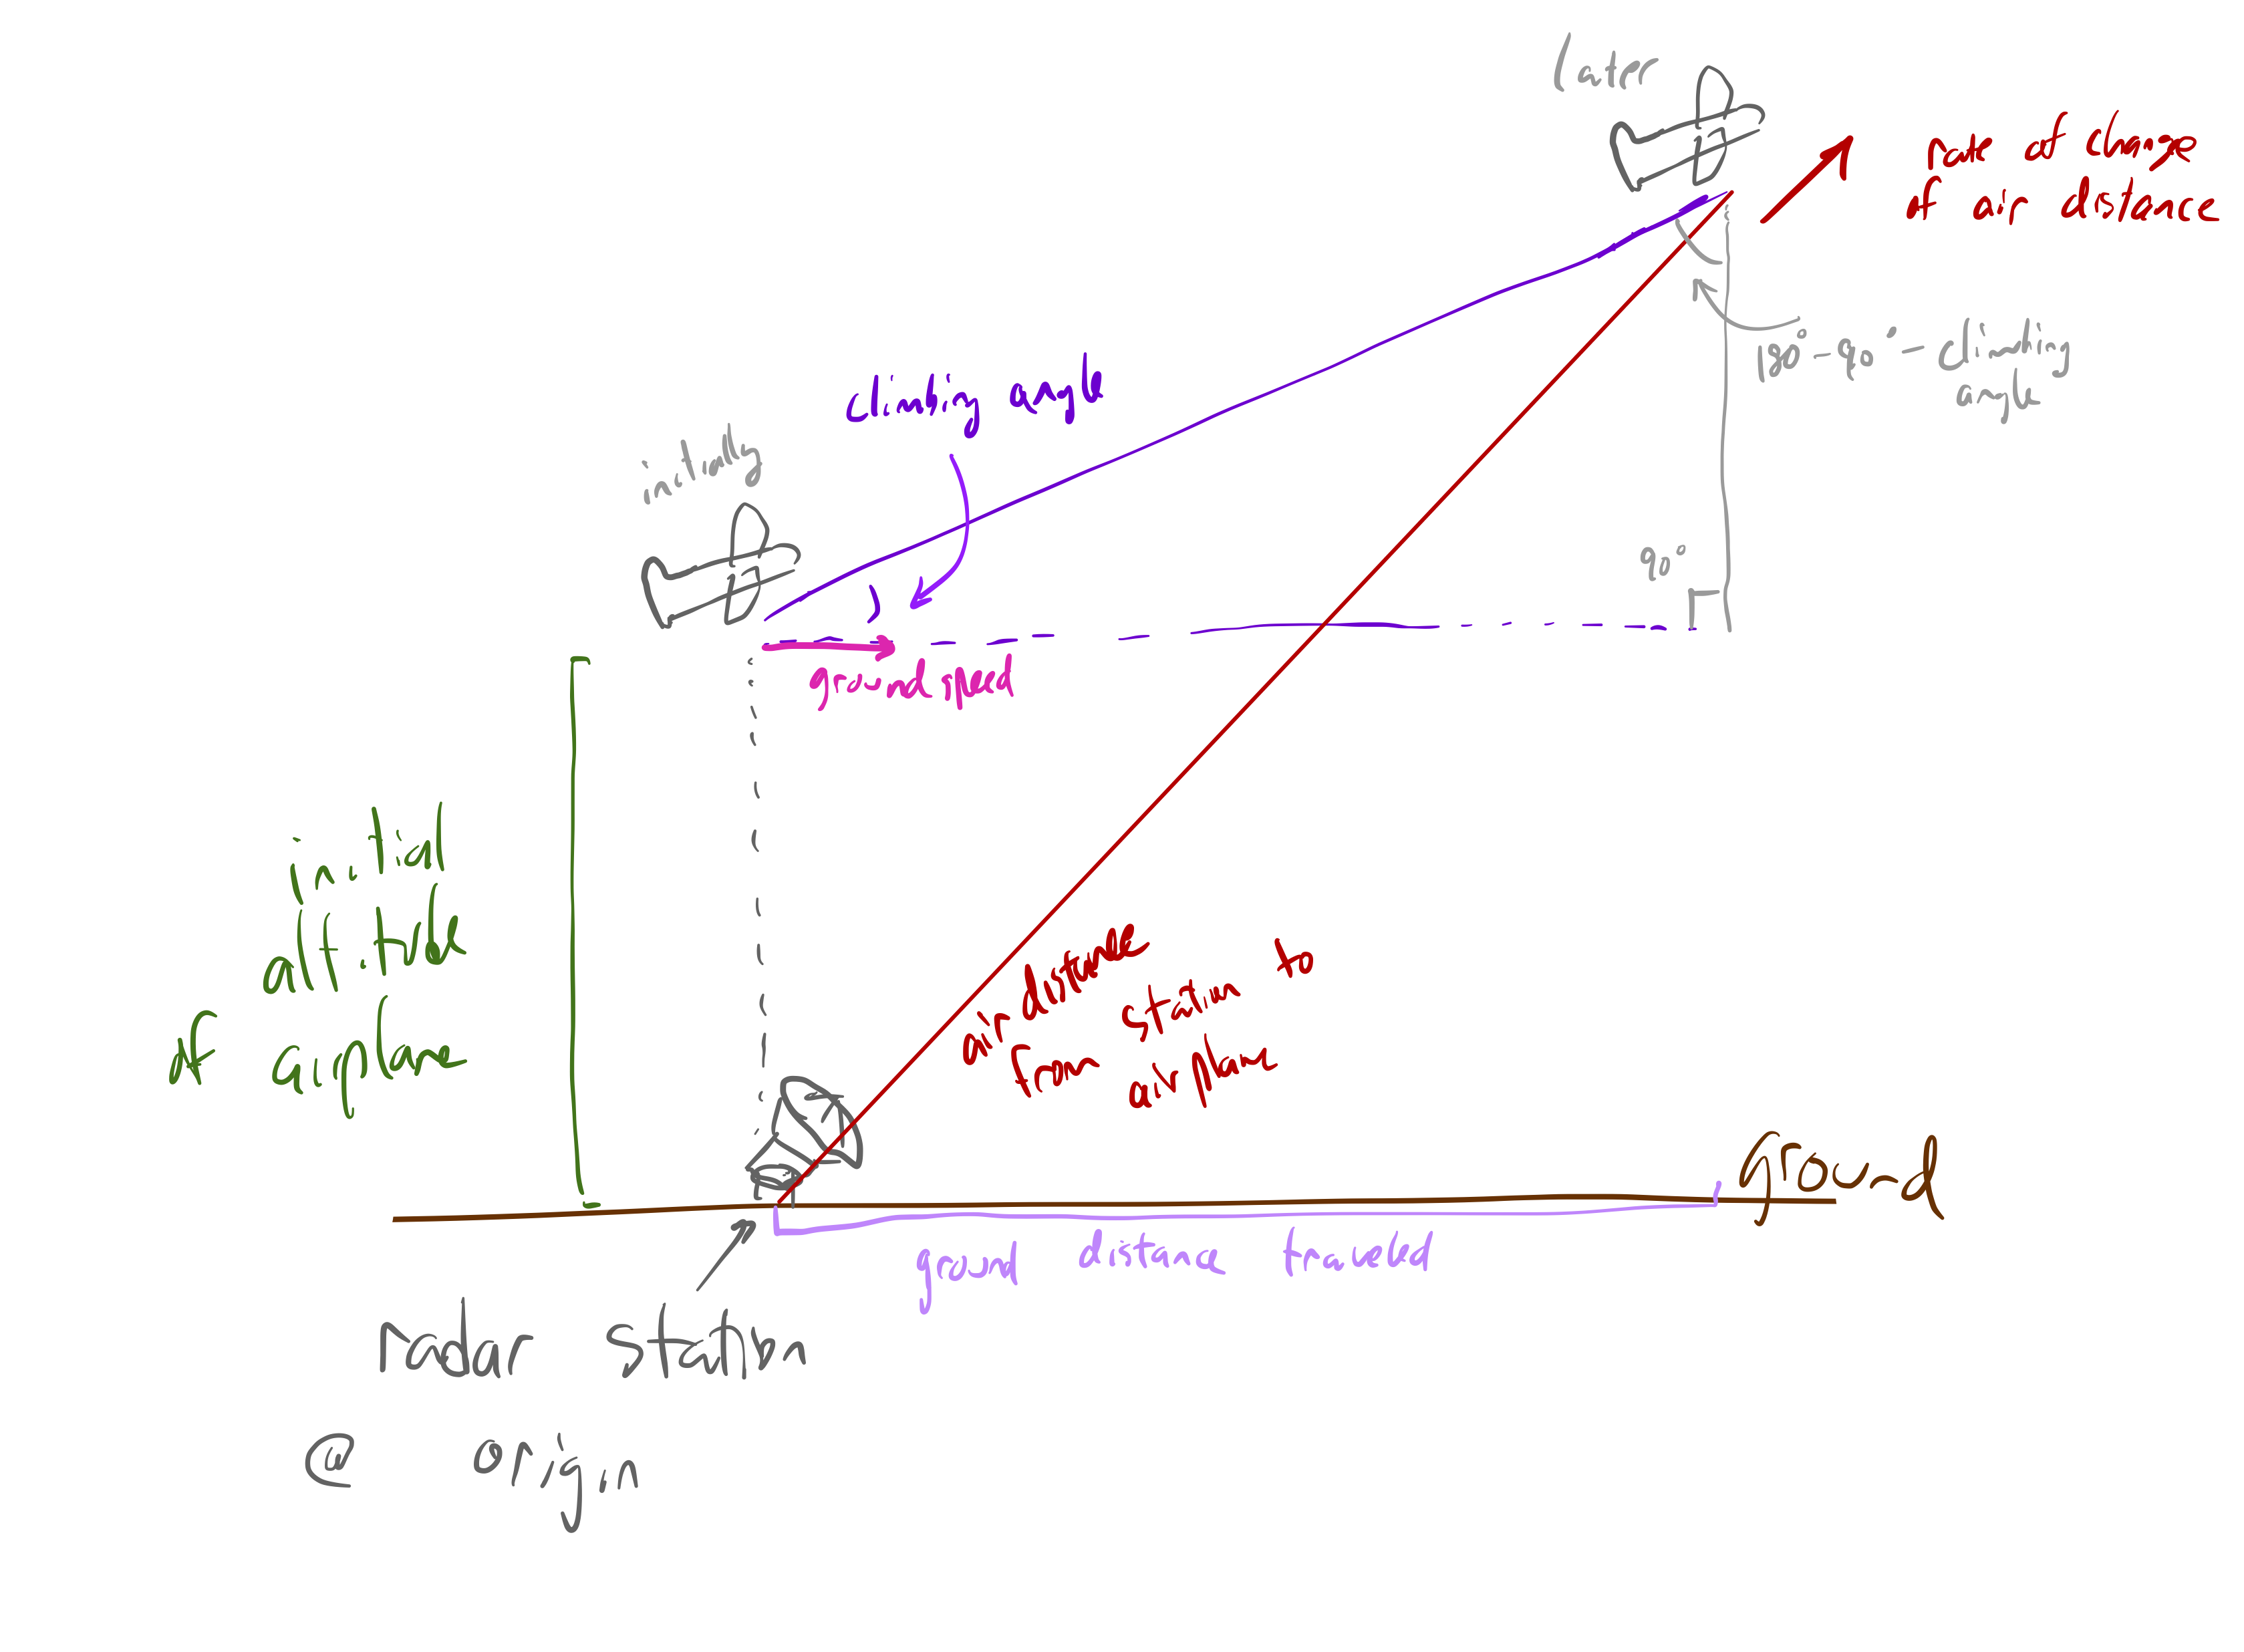 Later
rate of change
of air distance
180° - 90° - climbing
angle
climbing angle
initially
90°
ground speed
initial
altitude
of airplane
air distance
from station to
airplane
ground
ground distance traveled
radar station
@ origin